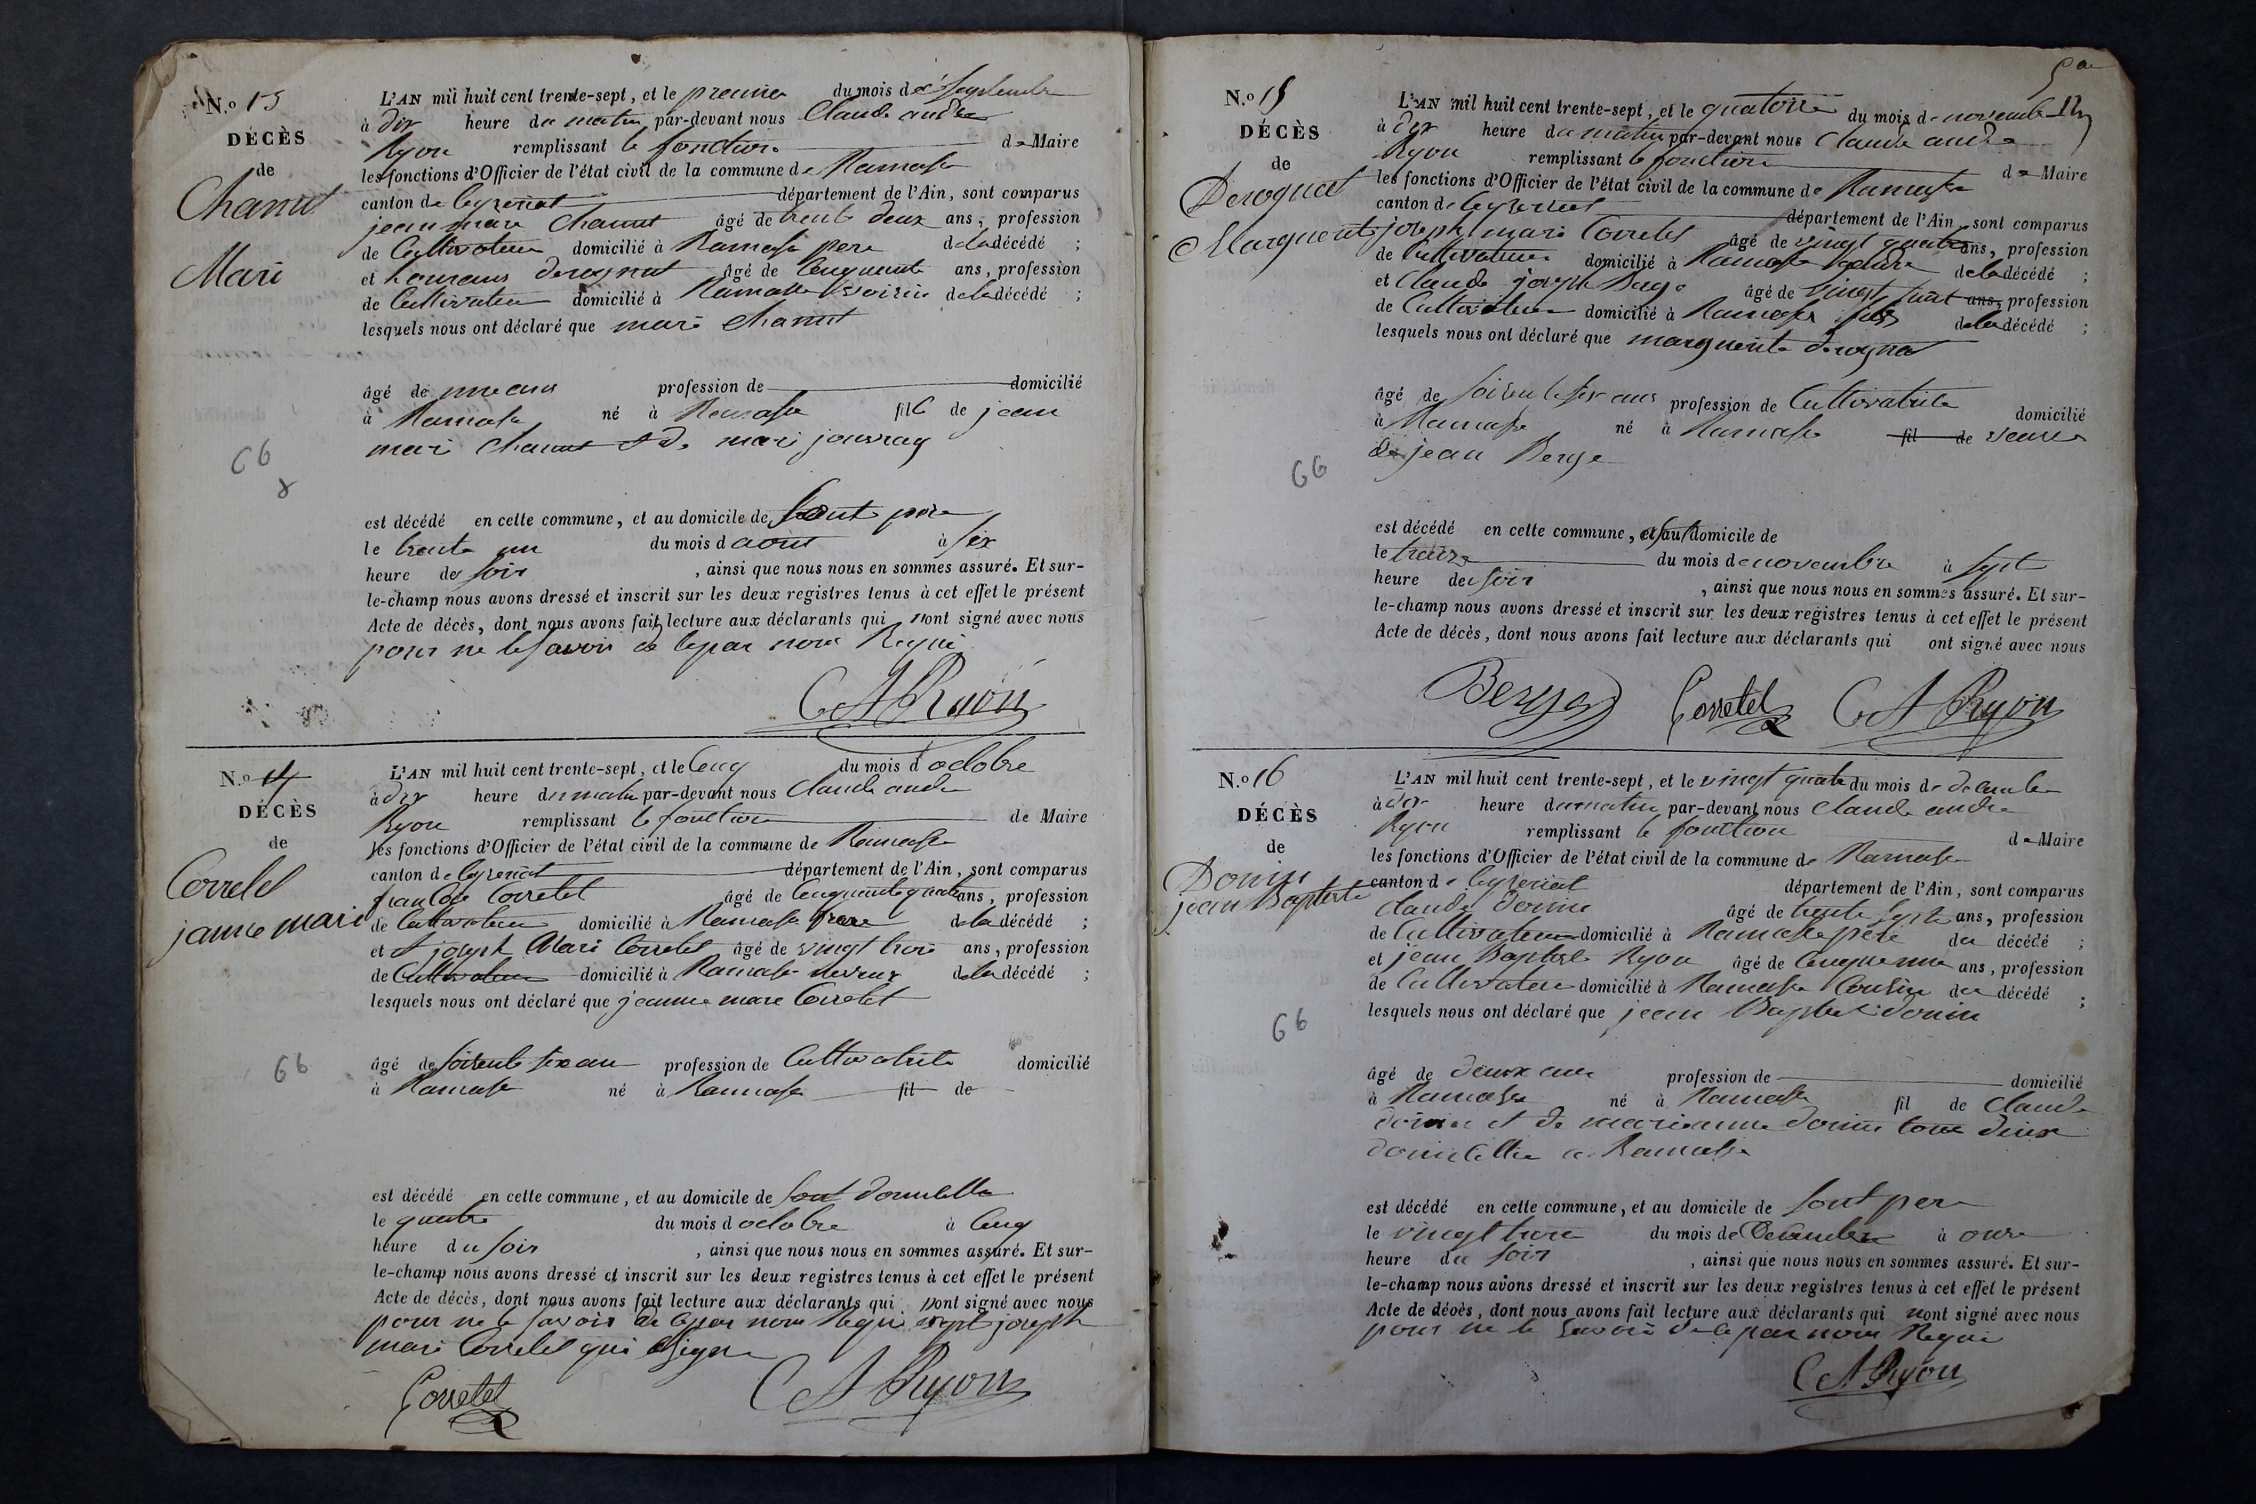 N.º 13
DÉCÈS
de
Chanut
Marie
L'AN mil huit cent trente-sept, et le premier du mois de septembre
à dix heure du matin par-devant nous Claude andre
Ryon remplissant le fonction de Maire
les fonctions d'Officier de l'état civil de la commune de Ramasse
canton de Ceyzeriat département de l'Ain, sont comparus
jean marie Chanut âgé de trente deux ans, profession
de Cultivateur domicilié à Ramasse pere de la décédé ;
et derognat âgé de Cinquante ans, profession
de Cultivateur domicilié à Ramasse voisin de la décédé ;
lesquels nous ont déclaré que marie Chanut
âgé de une ans profession de domicilié
à Ramasse né à Ramasse fille de jean
marie Chanut et de marie jouvray
66
est décédé en cette commune, et au domicile de sont pere
le trente un du mois d aout à six
heure de soir , ainsi que nous nous en sommes assuré. Et sur-
le-champ nous avons dressé et inscrit sur les deux registres tenus à cet effet le présent
Acte de décès, dont nous avons fait lecture aux déclarants qui nont signé avec nous
pour ne le savoir de le par nous Requi
CA Ryon
N.º 14
DÉCÈS
de
Corretel
janne marie
L'AN mil huit cent trente-sept, et le Cinq du mois d octobre
à dix heure du matin par-devant nous Claude andre
Ryon remplissant le fonction de Maire
les fonctions d'Officier de l'état civil de la commune de Ramasse
canton de Ceyzeriat département de l'Ain, sont comparus
Corretel âgé de Cinquante quatre ans, profession
de Cultivateur domicilié à Ramasse frere de la décédé ;
et joseph Marie Corretel âgé de vingt trois ans, profession
de Cultivateur domicilié à Ramasse neveux de la décédé ;
lesquels nous ont déclaré que jeanne marie Corretel
66
âgé de soisente six an profession de Cultivatrite domicilié
à Ramasse né à Ramasse fil de
est décédé en cette commune, et au domicile de sont
le quatre du mois d octobre à Cinq
heure du soir , ainsi que nous nous en sommes assuré. Et sur-
le-champ nous avons dressé et inscrit sur les deux registres tenus à cet effet le présent
Acte de décès, dont nous avons fait lecture aux déclarants qui nont signé avec nous
pour ne le savoir de le par nous Requi joseph
marie Corretel qui a signe
Corretel CA Ryon
N.º 15
DÉCÈS
de
Derognat
Marguerite
L'AN mil huit cent trente-sept, et le quatorze du mois de novembre
à dix heure du matin par-devant nous Claude andre
Ryon remplissant le fonction de Maire
les fonctions d'Officier de l'état civil de la commune de Ramasse
canton de Ceyzeriat département de l'Ain, sont comparus
joseph marie Corretel âgé de vingt quatre ans, profession
de Cultivateur domicilié à Ramasse de la décédé ;
et Claude joseph Berge âgé de vingt huit ans, profession
de Cultivateur domicilié à Ramasse fils de la décédé ;
lesquels nous ont déclaré que marguerite derognat
âgé de soisente six ans profession de Cultivatrite domicilié
à Ramasse né à Ramasse fil de veuve
de jean Berge
66
est décédé en cette commune, et au domicile de
le treize du mois de novembre à sept
heure de soir , ainsi que nous nous en sommes assuré. Et sur-
le-champ nous avons dressé et inscrit sur les deux registres tenus à cet effet le présent
Acte de décès, dont nous avons fait lecture aux déclarants qui ont signé avec nous
Berge Corretel CA Ryon
N.º 16
DÉCÈS
de
Donin
jean Baptiste
L'AN mil huit cent trente-sept, et le vingt quatre du mois de decembre
à dix heure du matin par-devant nous Claude andre
Ryon remplissant le fonction de Maire
les fonctions d'Officier de l'état civil de la commune de Ramasse
canton de Ceyzeriat département de l'Ain, sont comparus
Claude donin âgé de trente sept ans, profession
de Cultivateur domicilié à Ramasse pere du décédé ;
et jean Baptiste Ryon âgé de ans, profession
de Cultivateur domicilié à Ramasse Cousin du décédé ;
lesquels nous ont déclaré que jean Baptiste donin
66
âgé de deux ans profession de domicilié
à Ramasse né à Ramasse fil de Claude
donin et de marianne donin tous deux
à Ramasse
est décédé en cette commune, et au domicile de sont pere
le vingt trois du mois de Decembre à onze
heure du soir , ainsi que nous nous en sommes assuré. Et sur-
le-champ nous avons dressé et inscrit sur les deux registres tenus à cet effet le présent
Acte de décès, dont nous avons fait lecture aux déclarants qui nont signé avec nous
pour ne le savoir de le par nous Requi
CA Ryon